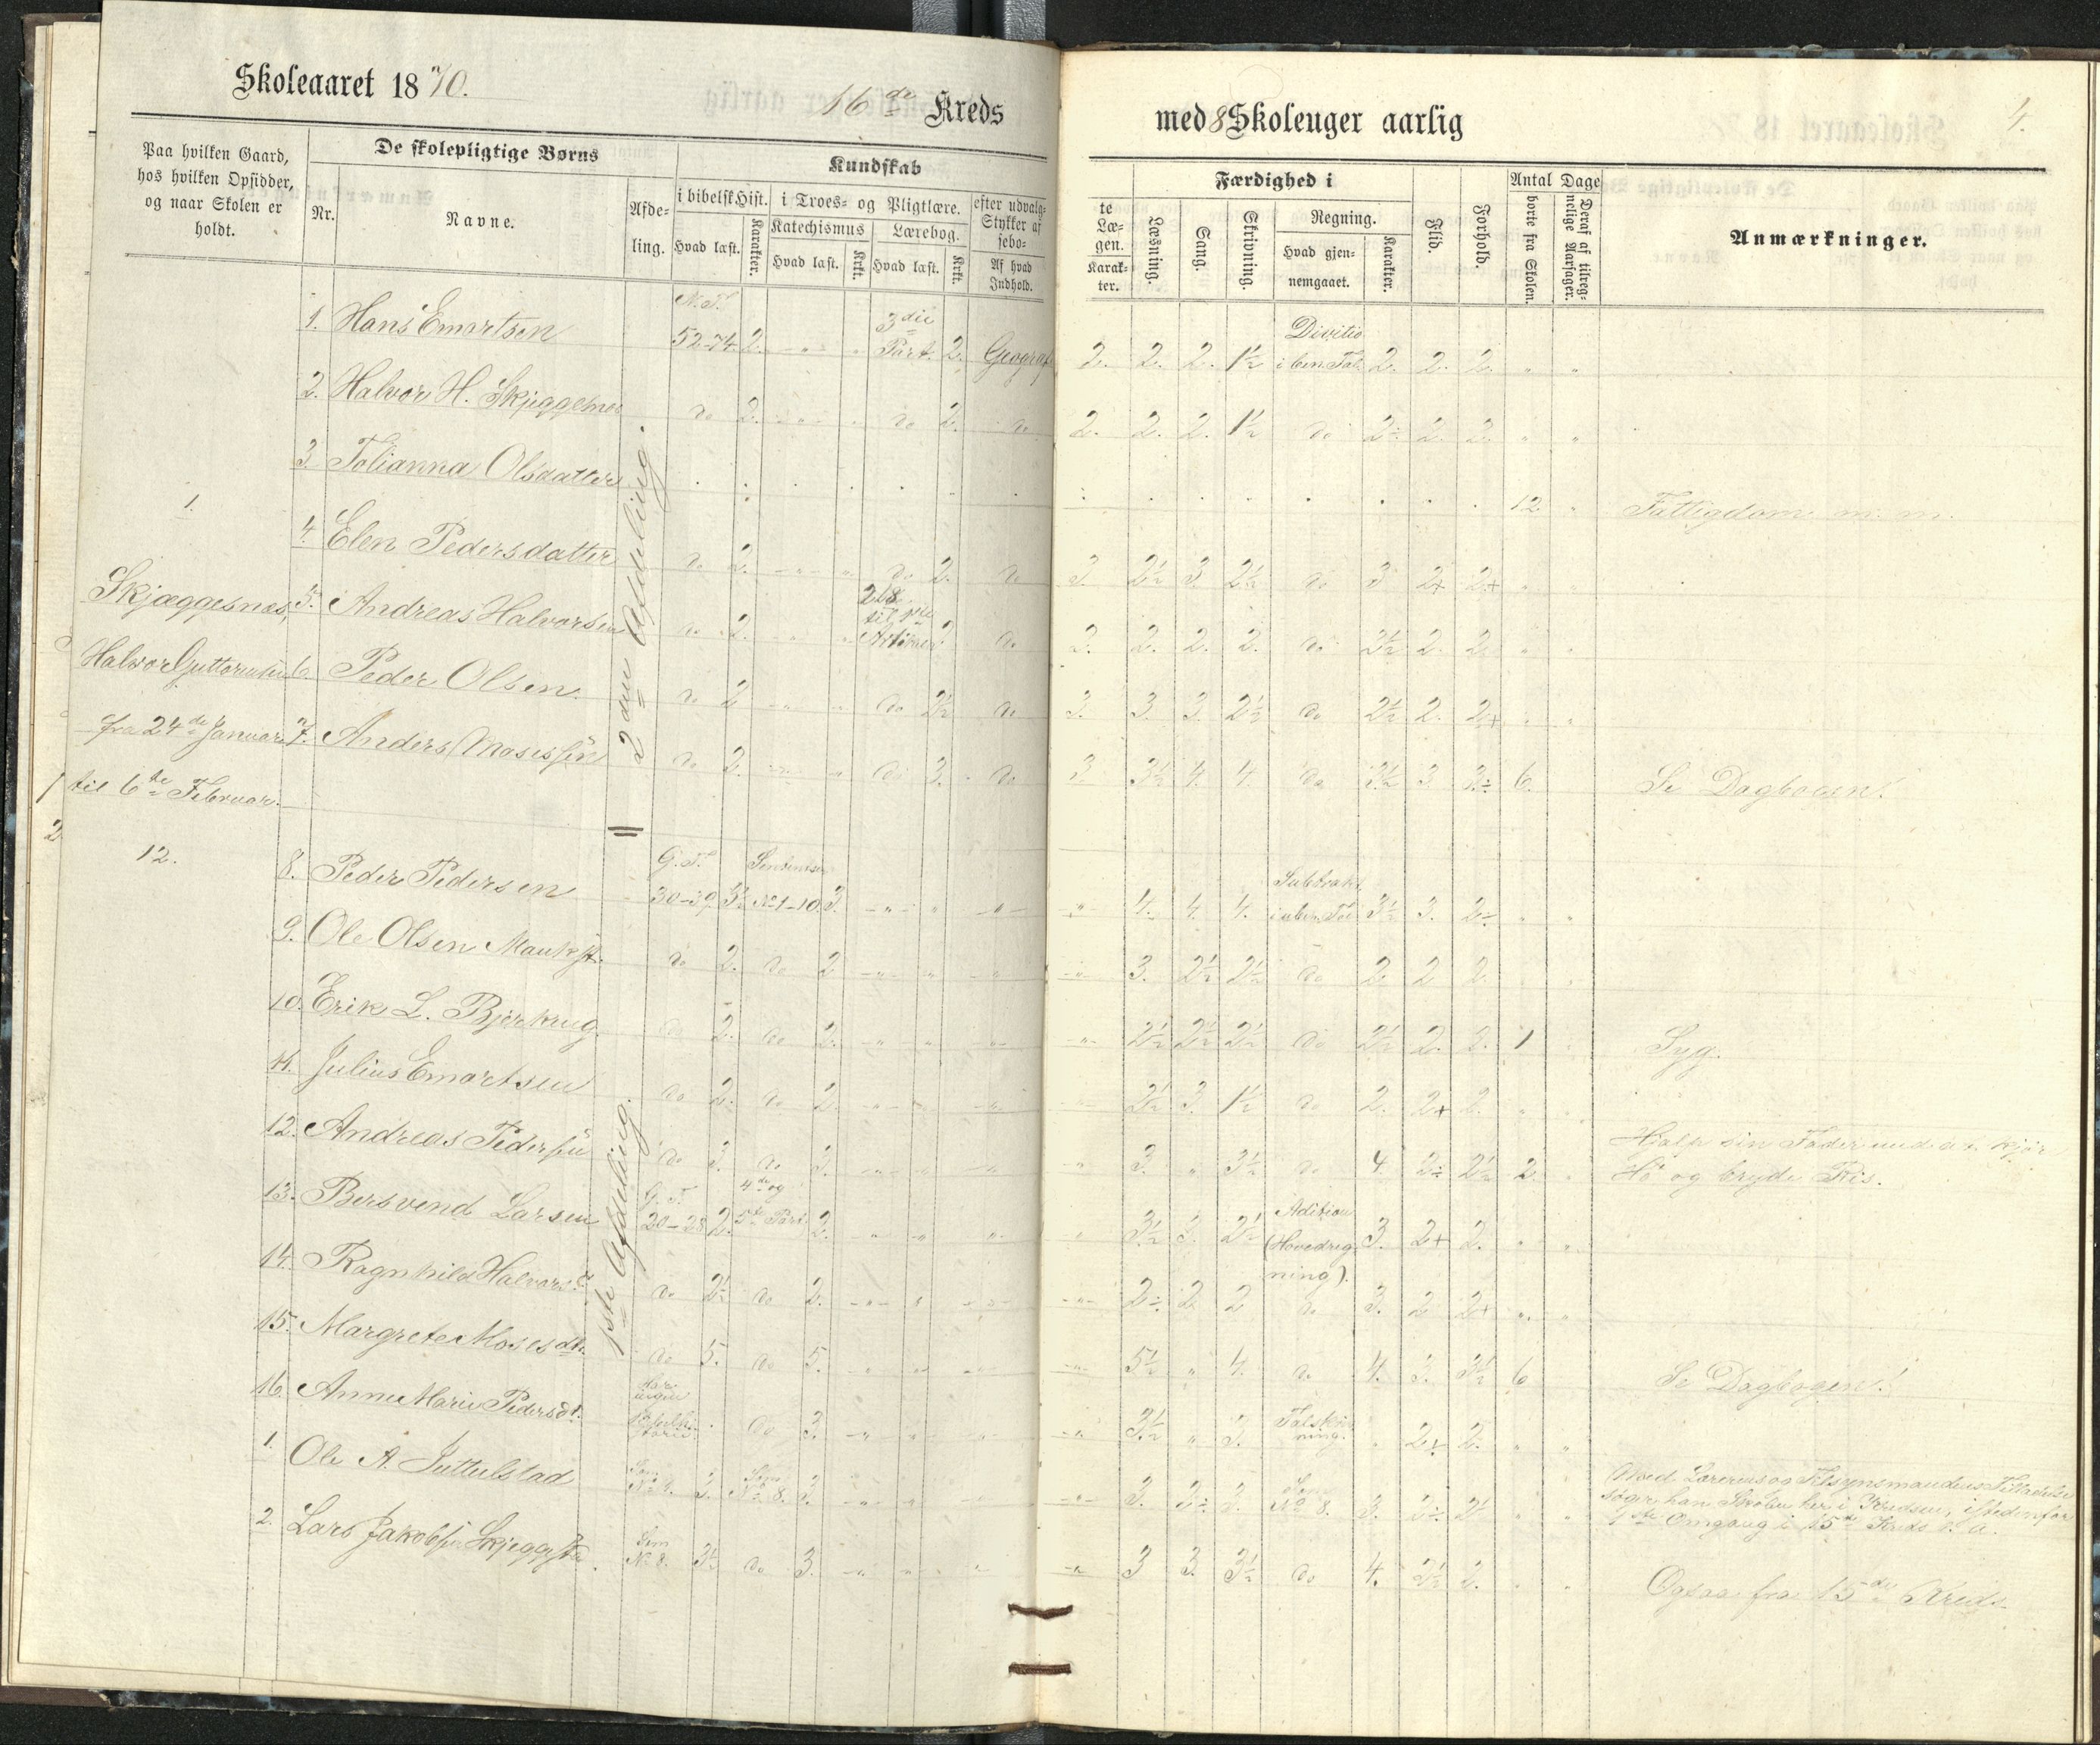 Skoleaaret 1870.
16de Kreds
med 8 Skoleuger aarlig
4.
Paa hvilken Gaard,
hos hvilken Opsidder,
og naar Skolen er
holdt.
De skolepligtige Børns
Nr.
Navne.
Afde-
ling.
Kundskab
i bibelsk Hist.
Hvad læst.
Karakter.
i Troes- og Pligtlære.
Katechismus
Hvad læst.
Krkt.
Lærebog.
Hvad læst.
Krkt.
efter udvalg-
Stykker af
sebo-
Af hvad
Indhold.
te
Læ-
gen.
Karak-
ter.
Færdighed i
Læsning.
Sang.
Skrivning.
Regning.
Hvad gjen-
nemgaaet.
Karakter.
Flid.
Forhold.
Antal Dage
borte fra Skolen.
Deraf af tilreg-
nelige Aarsager.
Anmærkninger.
1.
Skjæggesnæs,
Halvor Guttormsen
fra 24de Januar
til 6te Februar.
12.
2den Afdeling.
N. T. 3die Divitio
1. Hans Emartsen 52-74 2. Part. 2. Geograf 2. 2. 2. 1½ i ben. Tal 2. 2. 2.
2. Halvor H. Skjeggesnes do 2. do 2. do 2. 2. 2. 1½ do 2÷ 2. 2.
3. Tolianna Olsdatter 12 Fattigdom m. m.
4. Elen Pedersdatter do 2. do 2. do 3 2½ 3. 2½ do 3 2+ 2+
5. Andreas Halvorsen do 2. do 2. 2. 2. 2. do 2½ 2. 2.
6. Peder Olsen. do 2 do 2½ do 3. 3. 3. 2½ do 2½ 2. 2+
7. Anders Mosessøn do 2. do 3. do 3 3½ 4. 4. do 3½ 3 3÷ 6. Se Dagbogen!
1ste Afdeling.
G. T. Subtrakt.
8. Peder Pedersen 30-39 3½ No 1-10 3. 4. 4. 4. i uben. Tal 3½ 3. 2÷
9. Ole Olsen do 2. do 2 3. 2½ 2½ do 2 2 2
10. Erik L. Bjerkeng do 2. do 2. 2½ 2½ 2½ do 2½ 2. 2. 1 Syg.
11. Julius Emartsen do 2. do 2. 2½ 3. 1½ do 2. 2+ 2.
12. Andreas Pedersøn do 3. do 3. 3. 3½ do 4 2÷ 2½ 2 Hjalp sin Fader med at kjøre
Hø og bryde Ris.
G. T. 4de og Adition
13. Bersvend Larsen 20-28 2. 5te Part. 2. 3½ 3. 2½ (Hovedreg- 3. 2+ 2.
ning).
14. Ragnhild Halvorsd. do 2½ do 2. 2÷ 2 2 do 3. 2 2+
15. Margrete Mosesdtr. do 5. do 5. 5½ 4. do 4. 3. 3½ 6 Se Dagbogen!
16. Anne Marie Pedersdt. do 3. 3½ 3. Talskriv-
ning. 2+ 2.
1. Ole A. Juttulstad Sem No 8. 3. Sem No 8. 3. 3. 2÷ 3. Sem No 8. 3. 2÷ 2½ Med Lærerens og Tilsynsmandens Tilladelse
søger han Skolen her i Kredsen, istedenfor
1ste Omgang i 15de Kreds d. a.
2. Lars Jakobsen Skjeggstad. Sem No 8. 3½ do 3. 3 3. 3½ do 4. 2½ 2. Ogsaa fra 15de Kreds